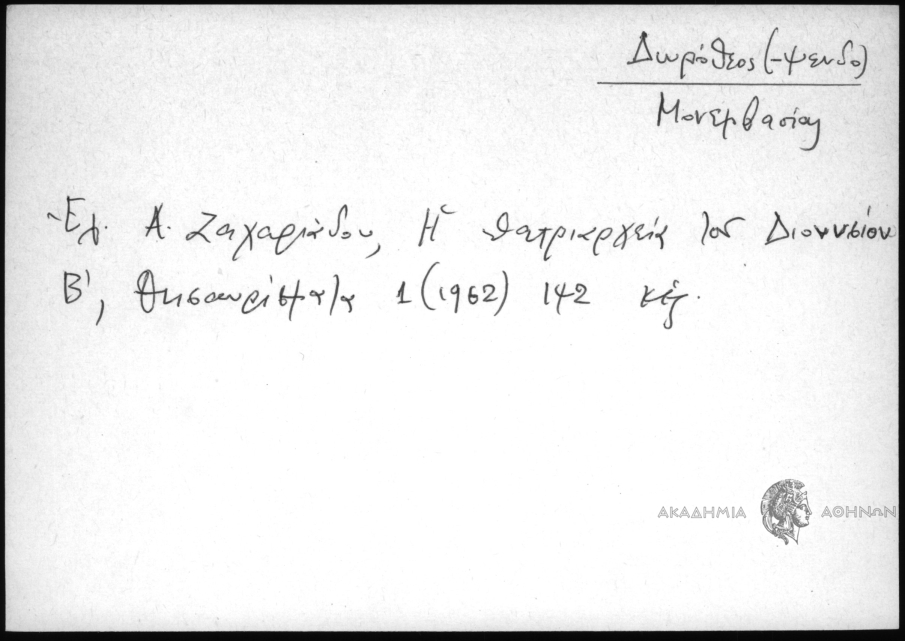 Δωρόθεος (-ψευδο)
Μονεμβασίας
Ἐλ. Α. Ζαχαριάδου, Ἡ πατριαρχεία τοῦ Διονυσίου
Β', Θησαυρίσματα 1 (1962) 142 κἑξ.
ΑΚΑΔΗΜΙΑ ΑΘΗΝΩΝ